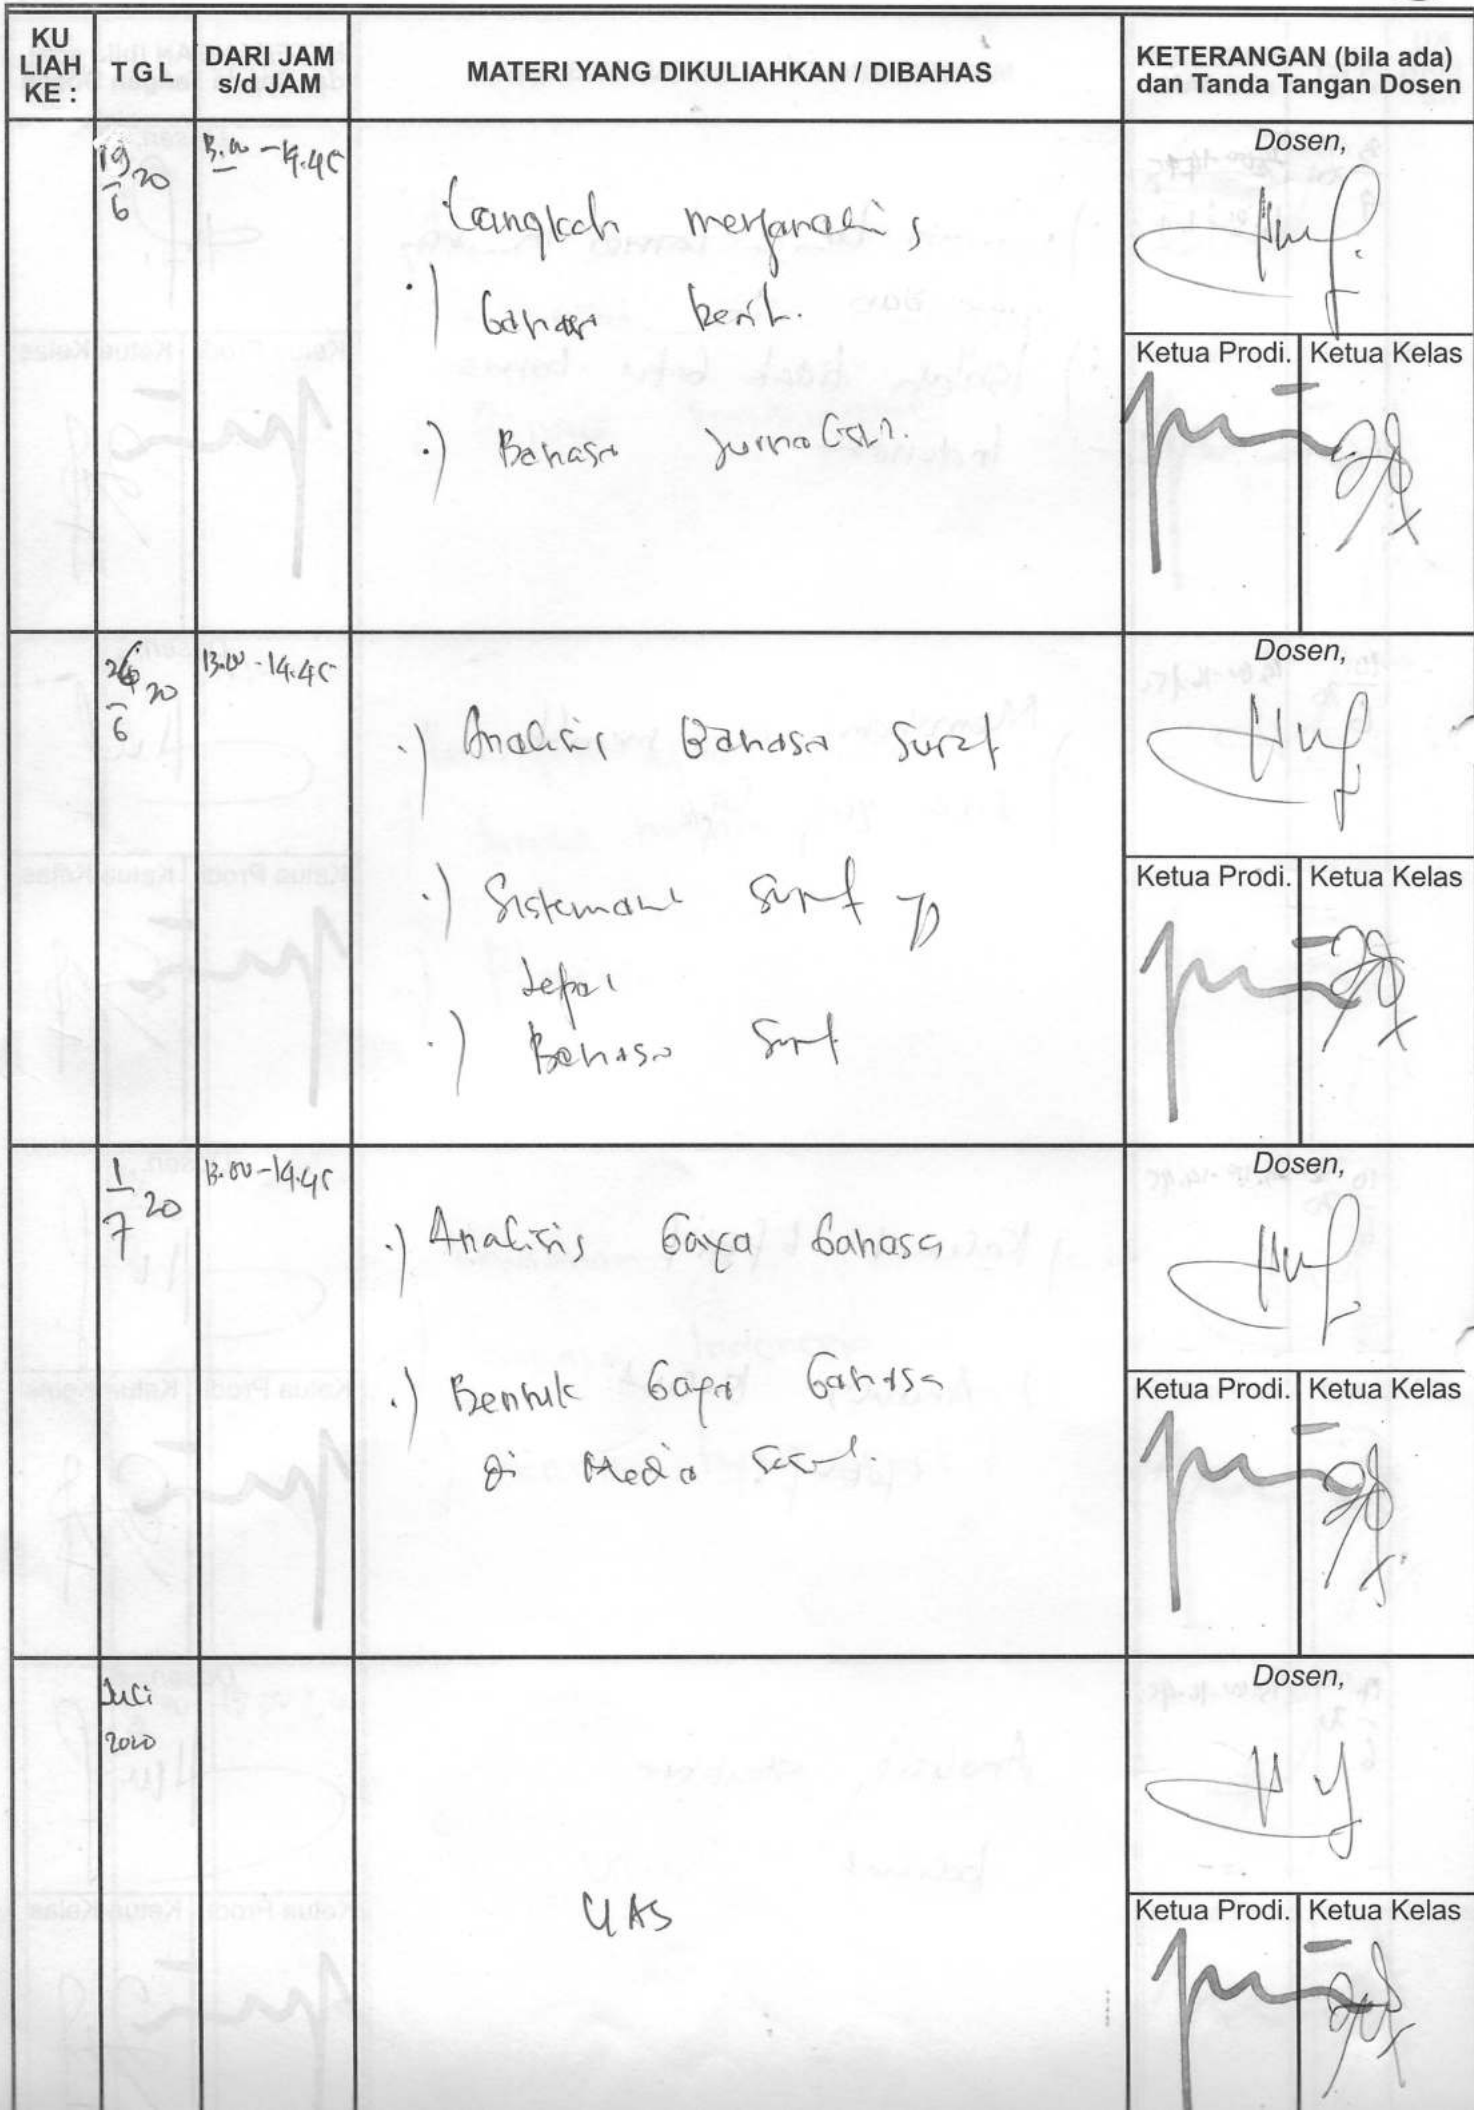 KU LIAH KE :
TGL
DARI JAM s/d JAM
MATERI YANG DIKULIAHKAN / DIBAHAS
KETERANGAN (bila ada) dan Tanda Tangan Dosen
19/6 20
13.00 - 14.45
Langkah menganalisis
.) bahasa berit.
.) Bahasa Jurnalis
Dosen,
Ketua Prodi.
Ketua Kelas
26/6 20
13.00 - 14.45
.) Analisis Bahasa Surat
.) Surat
.) Bahasa Surat
Dosen,
Ketua Prodi.
Ketua Kelas
1/7 20
13.00 - 14.45
.) Analisis Gaya bahasa
.) Bentuk Gaya bahasa
di Media
Dosen,
Ketua Prodi.
Ketua Kelas
Juli
2020
UAS
Dosen,
Ketua Prodi.
Ketua Kelas